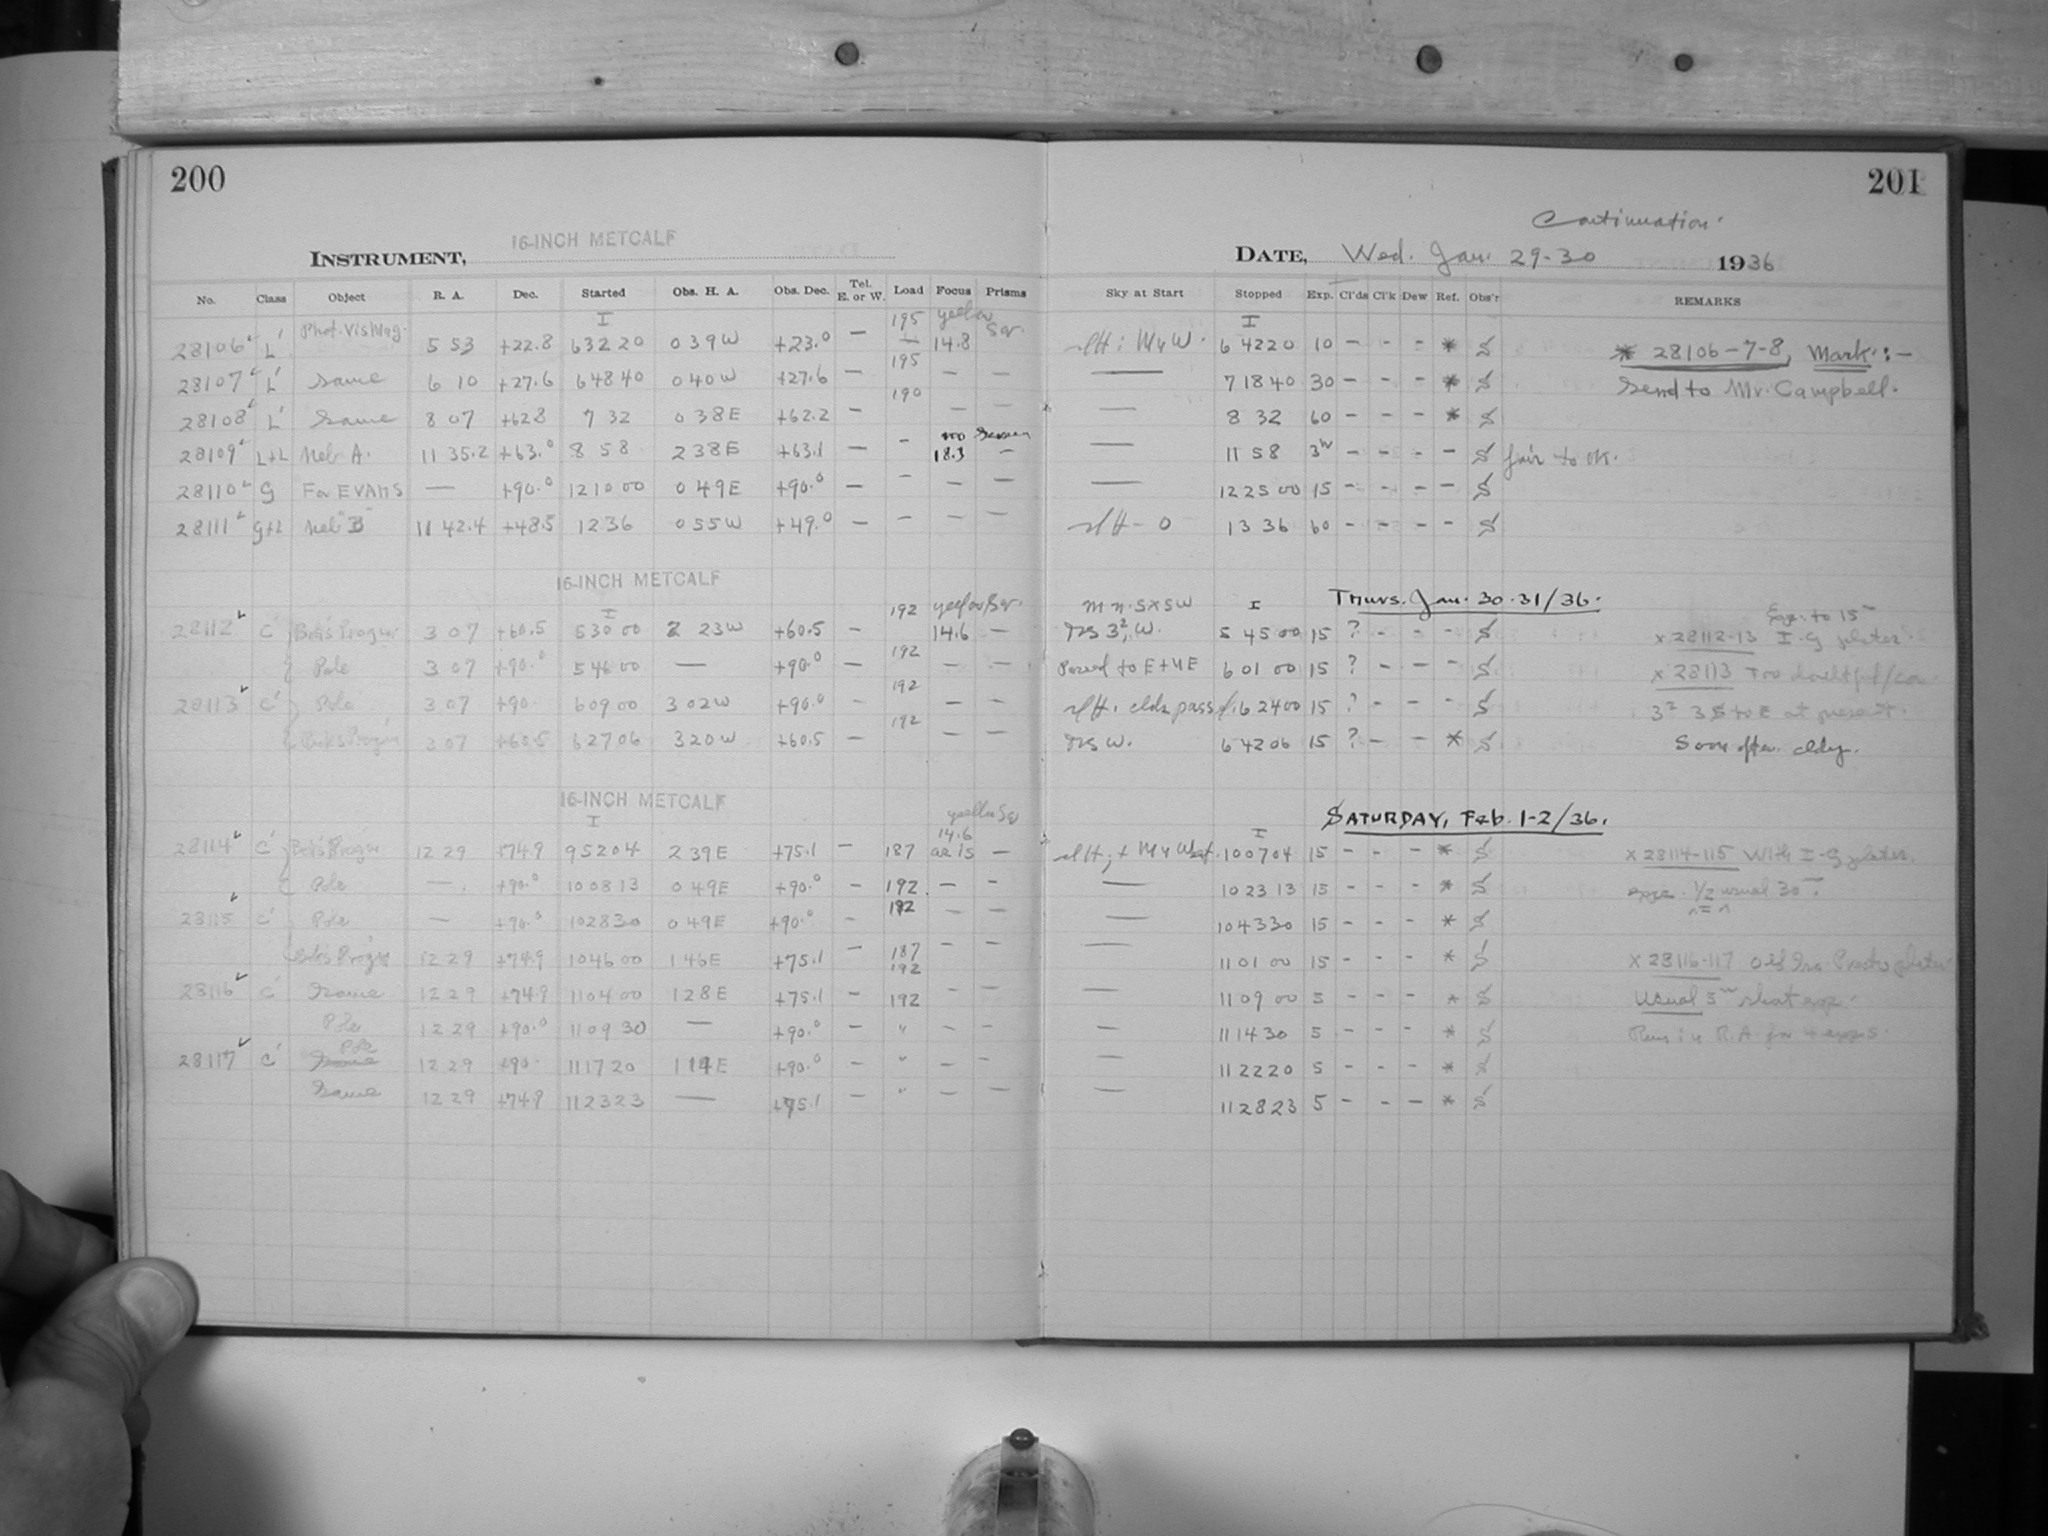 200
201
Continuation.
INSTRUMENT, 16-INCH METCALF
DATE, Wed. Jan. 29-30 1936
No. Class Object R. A. Dec. Started Obs. H. A. Obs. Dec. Tel. E. or W. Load Focus Prisms Sky at Start Stopped Exp. Cl'ds Cl'k Dew Ref. Obs'r REMARKS
28106 L' Phot. Vis Mag. 5 53 +22.8 6 32 20 0 39 W +23.0 — 195 yellow 14.8 Scr. 6 42 20 10 - - - * S * 28106-7-8, Mark:-
28107 L' Same 6 10 +27.6 6 48 40 0 40 W +27.6 — 195 — — — 7 18 40 30 - - - * S Send to Mr. Campbell.
28108 L' Same 8 07 +62.8 7 32 0 38 E +62.2 — 190 — — — 8 32 60 - - - * S
28109 L+L Neb. A. 11 35.2 +63.0 8 58 2 38 E +63.1 — - no Screen 18.3 — — 11 58 3h - - - - S fair to ok.
28110 G For EVANS — +90.0 12 10 00 0 49 E +90.0 — - — — — 12 25 00 15 - - - - S
28111 G+L Neb "B" 11 42.4 +48.5 12 36 0 55 W +49.0 — - — — - 0 13 36 60 - - - - S
16-INCH METCALF
Thurs. Jan. 30-31/36.
28112 C' Bok's Progm 3 07 +60.5 5 30 00 2 23 W +60.5 — 192 yellow Scr. 14.6 — 5 45 00 15 ? - - - S x 28112-13 I-G plates Exp. to 15m
Pole 3 07 +90.0 5 46 00 — +90.0 — 192 — — to E + NE 6 01 00 15 ? - - - S x 28113 Too doubtful
28113 C' Pole 3 07 +90. 6 09 00 3 02 W +90.0 — 192 — — clds pass 6 24 00 15 ? - - - S to E at present.
Bok's Progm 3 07 +60.5 6 27 06 3 20 W +60.5 — 192 — — W. 6 42 06 15 ? - - * S Soon after cldy.
16-INCH METCALF
SATURDAY, Feb. 1-2/36.
28114 C' Bok's Progm 12 29 +74.9 9 52 04 2 39 E +75.1 — 187 yellow Sc 14.6 — 10 07 04 15 - - - * S x 28114-115 With I-G plates.
Pole — +90.0 10 08 13 0 49 E +90.0 — 192 — — — 10 23 13 15 - - - * S exps. 1/2 usual 30m.
28115 C' Pole — +90.0 10 28 30 0 49 E +90.0 — 192 — — — 10 43 30 15 - - - * S
Bok's Progm 12 29 +74.9 10 46 00 1 46 E +75.1 — 187 192 — — — 11 01 00 15 - - - * S x 28116-117 Presto plates
28116 C' Same 12 29 +74.9 11 04 00 1 28 E +75.1 — 192 — — — 11 09 00 5 - - - * S Usual 5m short exp.
Pole 12 29 +90.0 11 09 30 — +90.0 — " — — — 11 14 30 5 - - - * S Run in R.A. for 4 exps.
28117 C' Pole 12 29 +90. 11 17 20 1 14 E +90.0 — " — — — 11 22 20 5 - - - * S
Same 12 29 +74.9 11 23 23 — +75.1 — " — — — 11 28 23 5 - - - * S